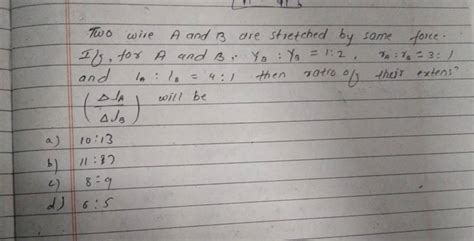 Two wire A and B are stretched by same force.
If, for A and B, YA : YB = 1:2, rA : rB = 3:1
and lA : lB = 4:1 then ratio of their extens^n
(ΔlA / ΔlB) will be
a) 10:13
b) 11:87
c) 8:9
d) 6:5